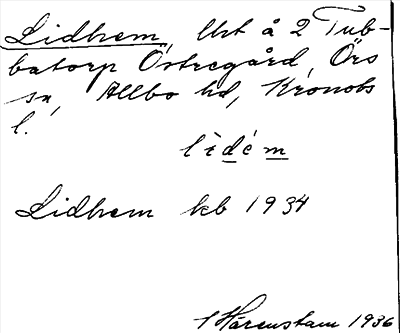 Lidhem, lht å 2 Tub-
batorp Östregård, Örs
sn, Allbo hd, Kronobs
l.
lìdém
Lidhem kb 1934
I Härenstam 1936